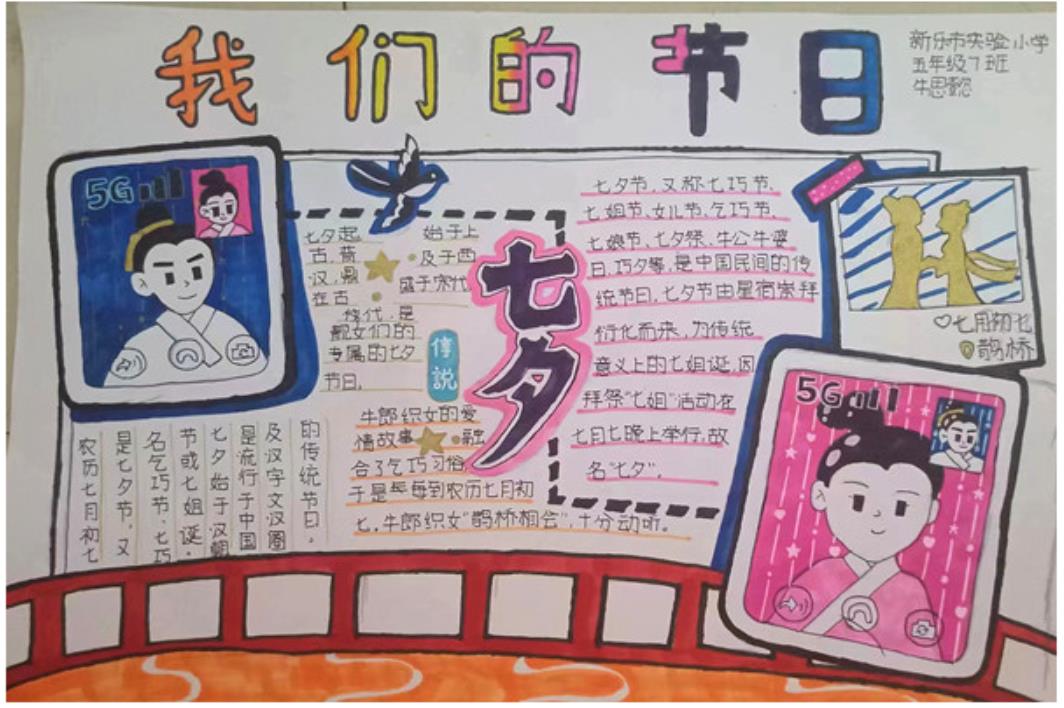 我们的节日
新乐市实验小学
五年级7班
牛思懿
5G
七夕起 始于上
古,普 及于西
汉,鼎 盛于宋代
在古
代,是
靓女们的
专属的七夕
节日。
传说
七夕
牛郎织女的爱
情故事 融
合了乞巧习俗,
于是每每到农历七月初
七,牛郎织女“鹊桥相会”,十分动听。
七夕节,又称七巧节、
七姐节、女儿节、乞巧节、
七娘节、七夕祭、牛公牛婆
日、巧夕等,是中国民间的传
统节日,七夕节由星宿崇拜
衍化而来,为传统
意义上的七姐诞,因
拜祭“七姐”活动在
七月七晚上举行,故
名“七夕”。
七月初七
鹊桥
农历七月初七
是七夕节,又
名乞巧节、七巧
节或七姐诞。
七夕始于汉朝
是流行于中国
及汉字文汉圈
的传统节日。
5G